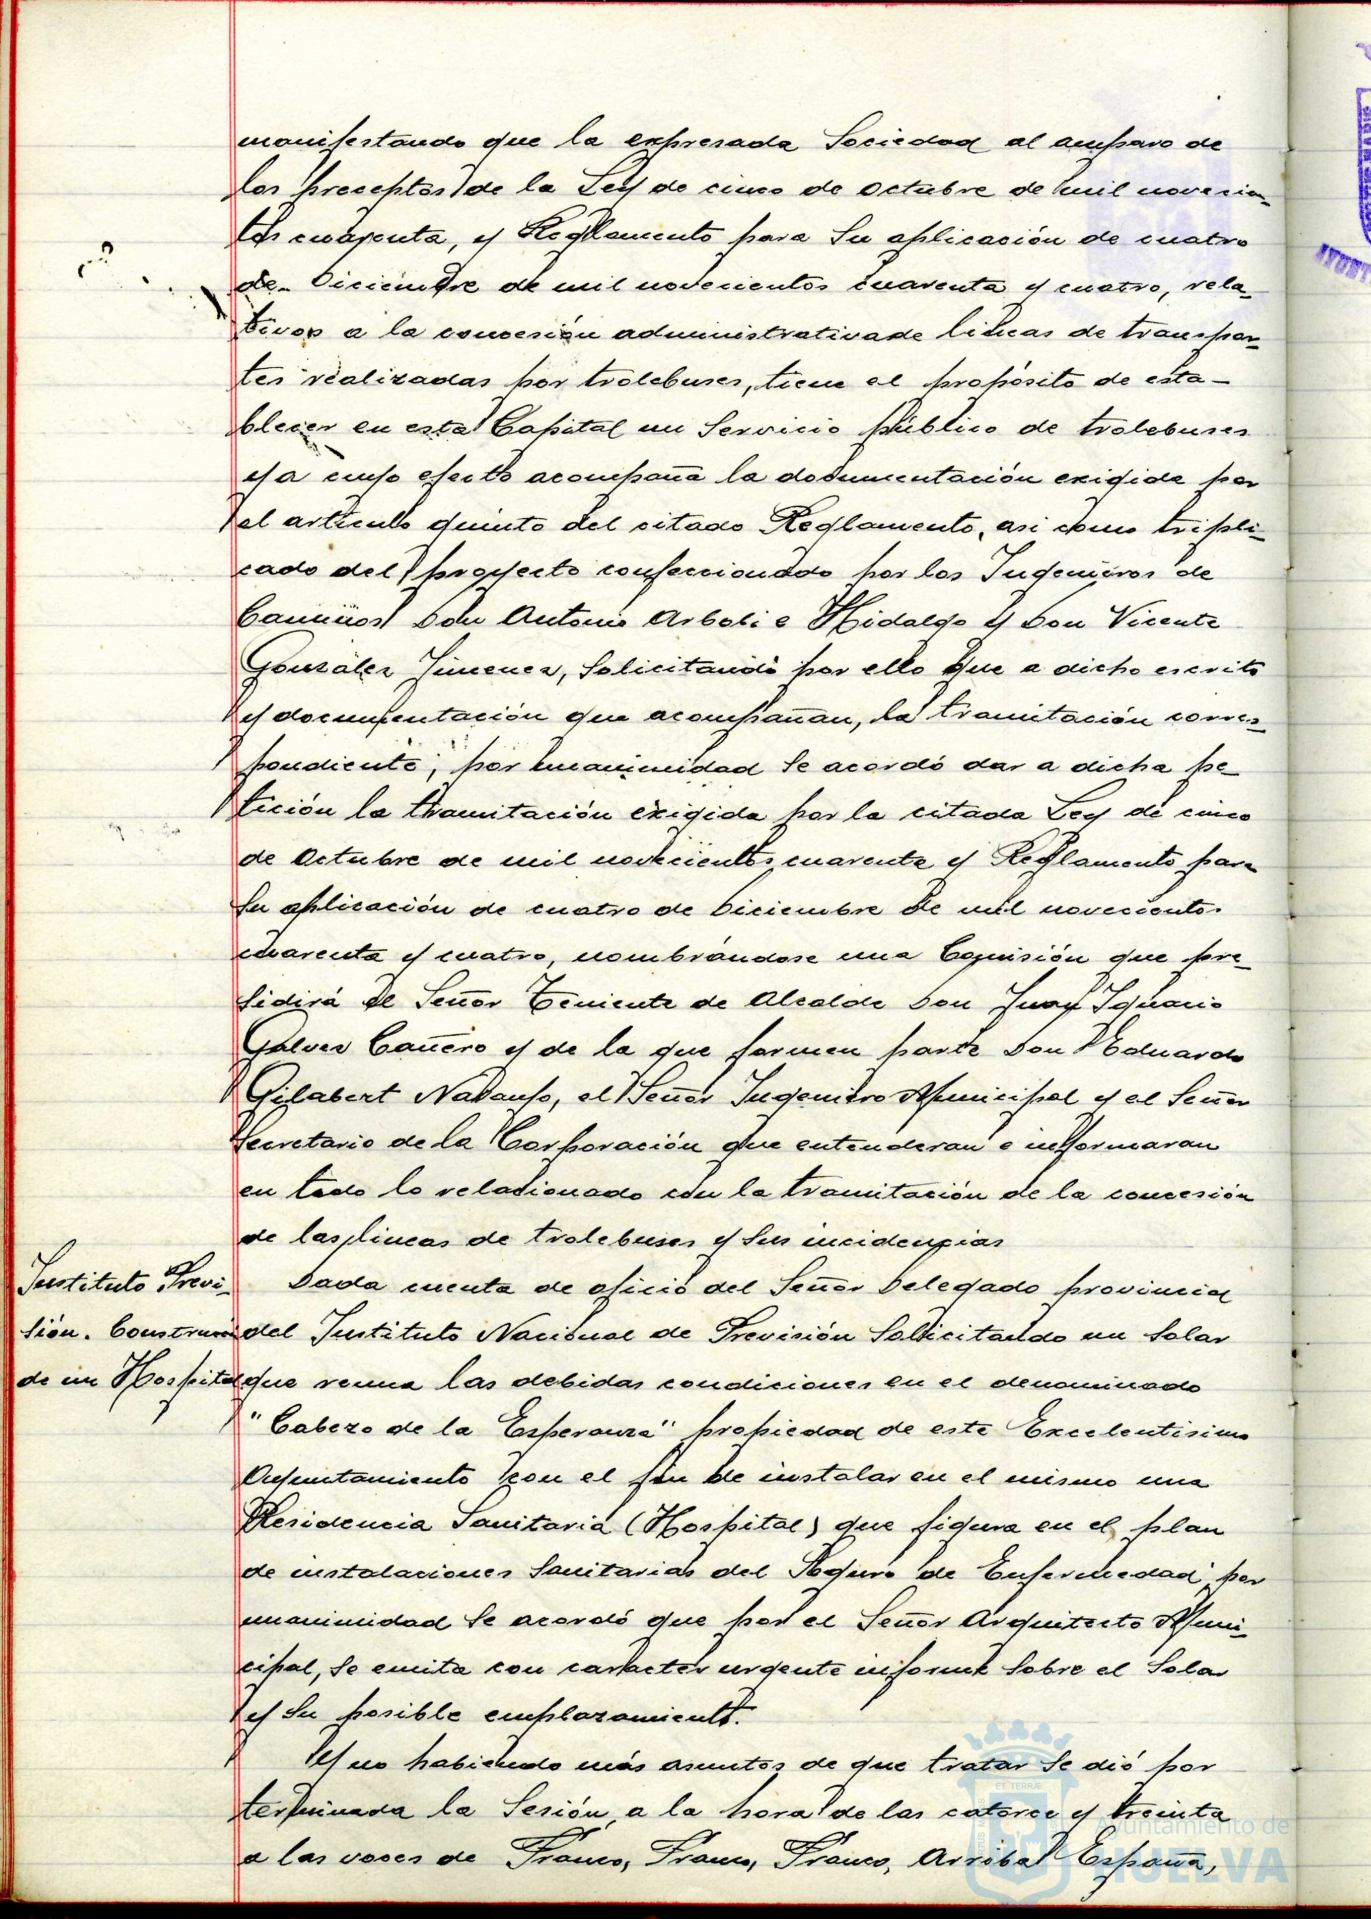 manifestando que la expresada Sociedad al amparo de
los preceptos de la Ley de cinco de octubre de mil novecien-
tos cuarenta, y Reglamento para su aplicación de cuatro
de Diciembre de mil novecientos cuarenta y cuatro, rela-
tivos a la concesión administrativa de lineas de transpor-
tes realizadas por trolebuses, tiene el propósito de esta-
blecer en esta Capital un Servicio público de trolebuses
y a cuyo efecto acompaña la documentación exigida por
el artículo quinto del citado Reglamento, asi como tripli-
cado del proyecto confeccionado por los Ingenieros de
Caminos Don Antonio Arboli e Hidalgo y Don Vicente
González Jimenez, solicitando por ello que a dicho escrito
y documentación que acompañan, la tramitación corres-
pondiente; por unanimidad se acordó dar a dicha pe-
tición la tramitación exigida por la citada Ley de cinco
de Octubre de mil novecientos cuarenta y Reglamento para
su aplicación de cuatro de Diciembre de mil novecientos
cuarenta y cuatro, nombrándose una Comisión que pre-
sidirá el Señor Teniente de Alcalde Don Juan Ignacio
Galvez Cañero y de la que formen parte Don Eduardo
Gilabert Navarro, el Señor Ingeniero Municipal y el Señor
Secretario de la Corporación que entenderan e informaran
en todo lo relacionado con la tramitación de la concesión
de las lineas de trolebuses y sus incidencias
Instituto Previ-
sión. Construcc
de un Hospital
Dada cuenta de oficio del Señor Delegado provincial
del Instituto Nacional de Previsión Solicitando un Solar
que reuna las debidas condiciones en el denominado
"Cabezo de la Esperanza" propiedad de este Excelentisimo
Ayuntamiento con el fin de instalar en el mismo una
Residencia Sanitaria (Hospital) que figura en el plan
de instalaciones Sanitarias del Seguro de Enfermedad; por
unanimidad se acordó que por el Señor Arquitecto Muni-
cipal, se emita con caracter urgente informe sobre el Solar
y su posible emplazamiento.
Y no habiendo más asuntos de que tratar se dió por
terminada la Sesión a la hora de las catorce y treinta
a las voces de Franco, Franco, Franco, Arriba España,
Ayuntamiento de
HUELVA